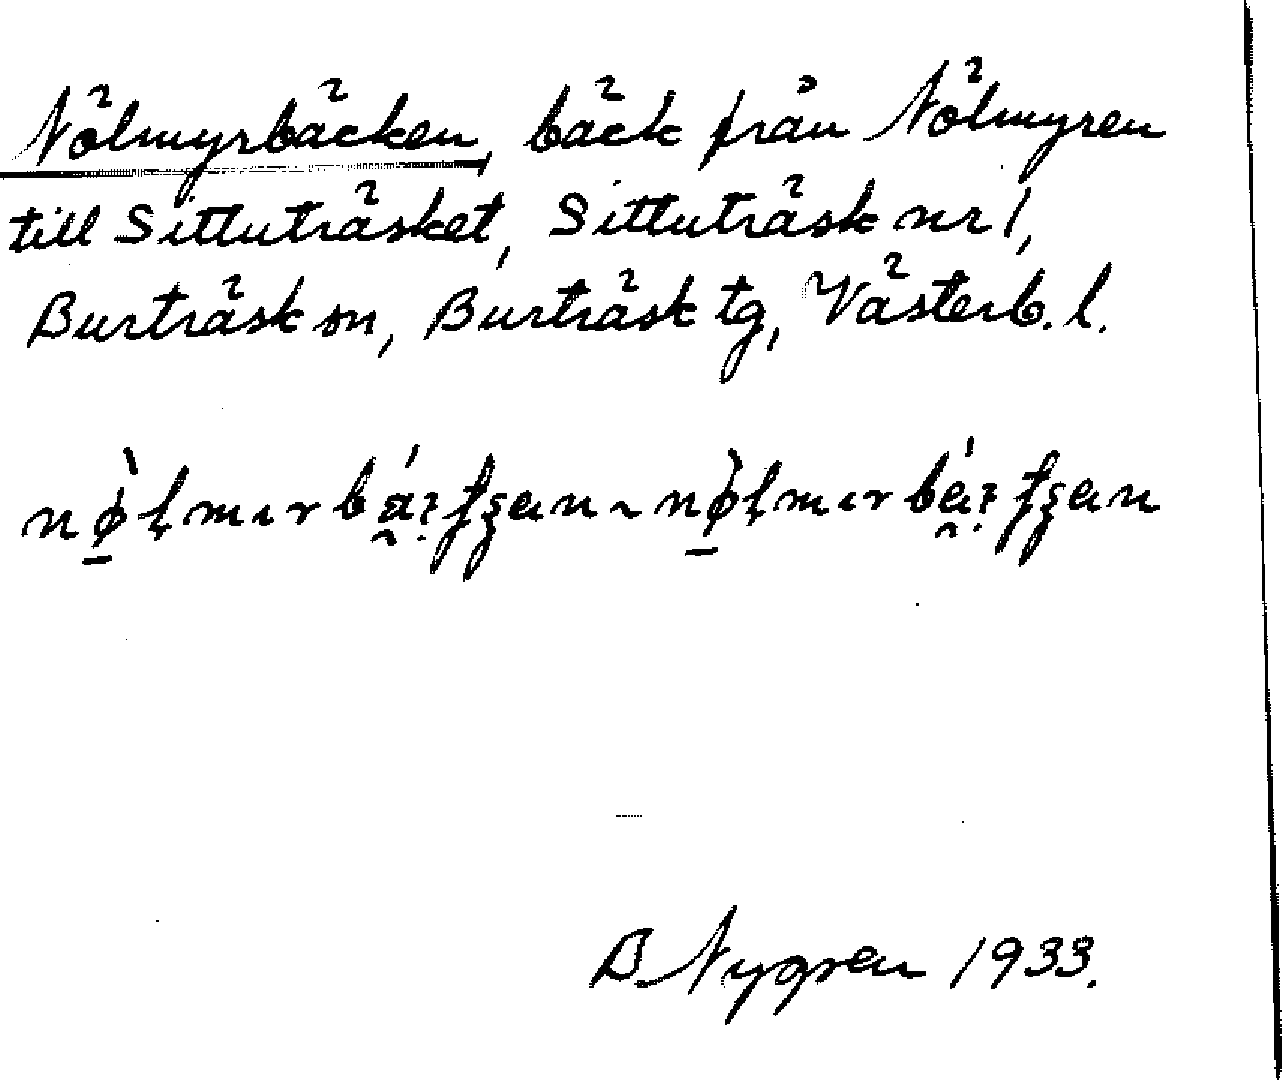 Nölmyrbäcken, bäck från Nölmyren
till Sittuträsket, Sittuträsk nr 1,
Burträsk sn, Burträsk tg, Västerb. l.
B. Nygren 1933.